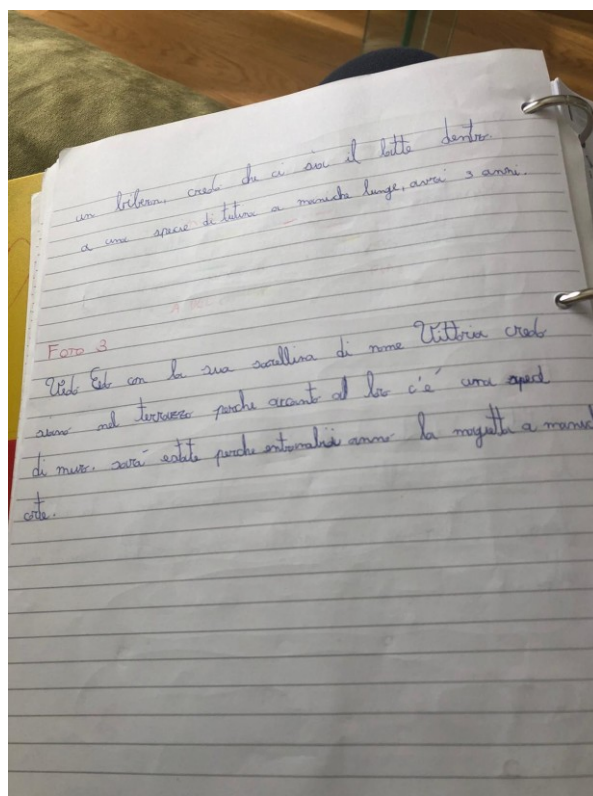 un biberon, credo che ci sia il latte dentro
a una specie di tutina a maniche lunge, avrai 3 anni.
Foto 3
Vedo Edo con la sua sorellina di nome Vittoria credo
siano nel terrazzo perche accanto al loro c'é una
di muro. sará estate perche anno la maglietta a manich
corte.